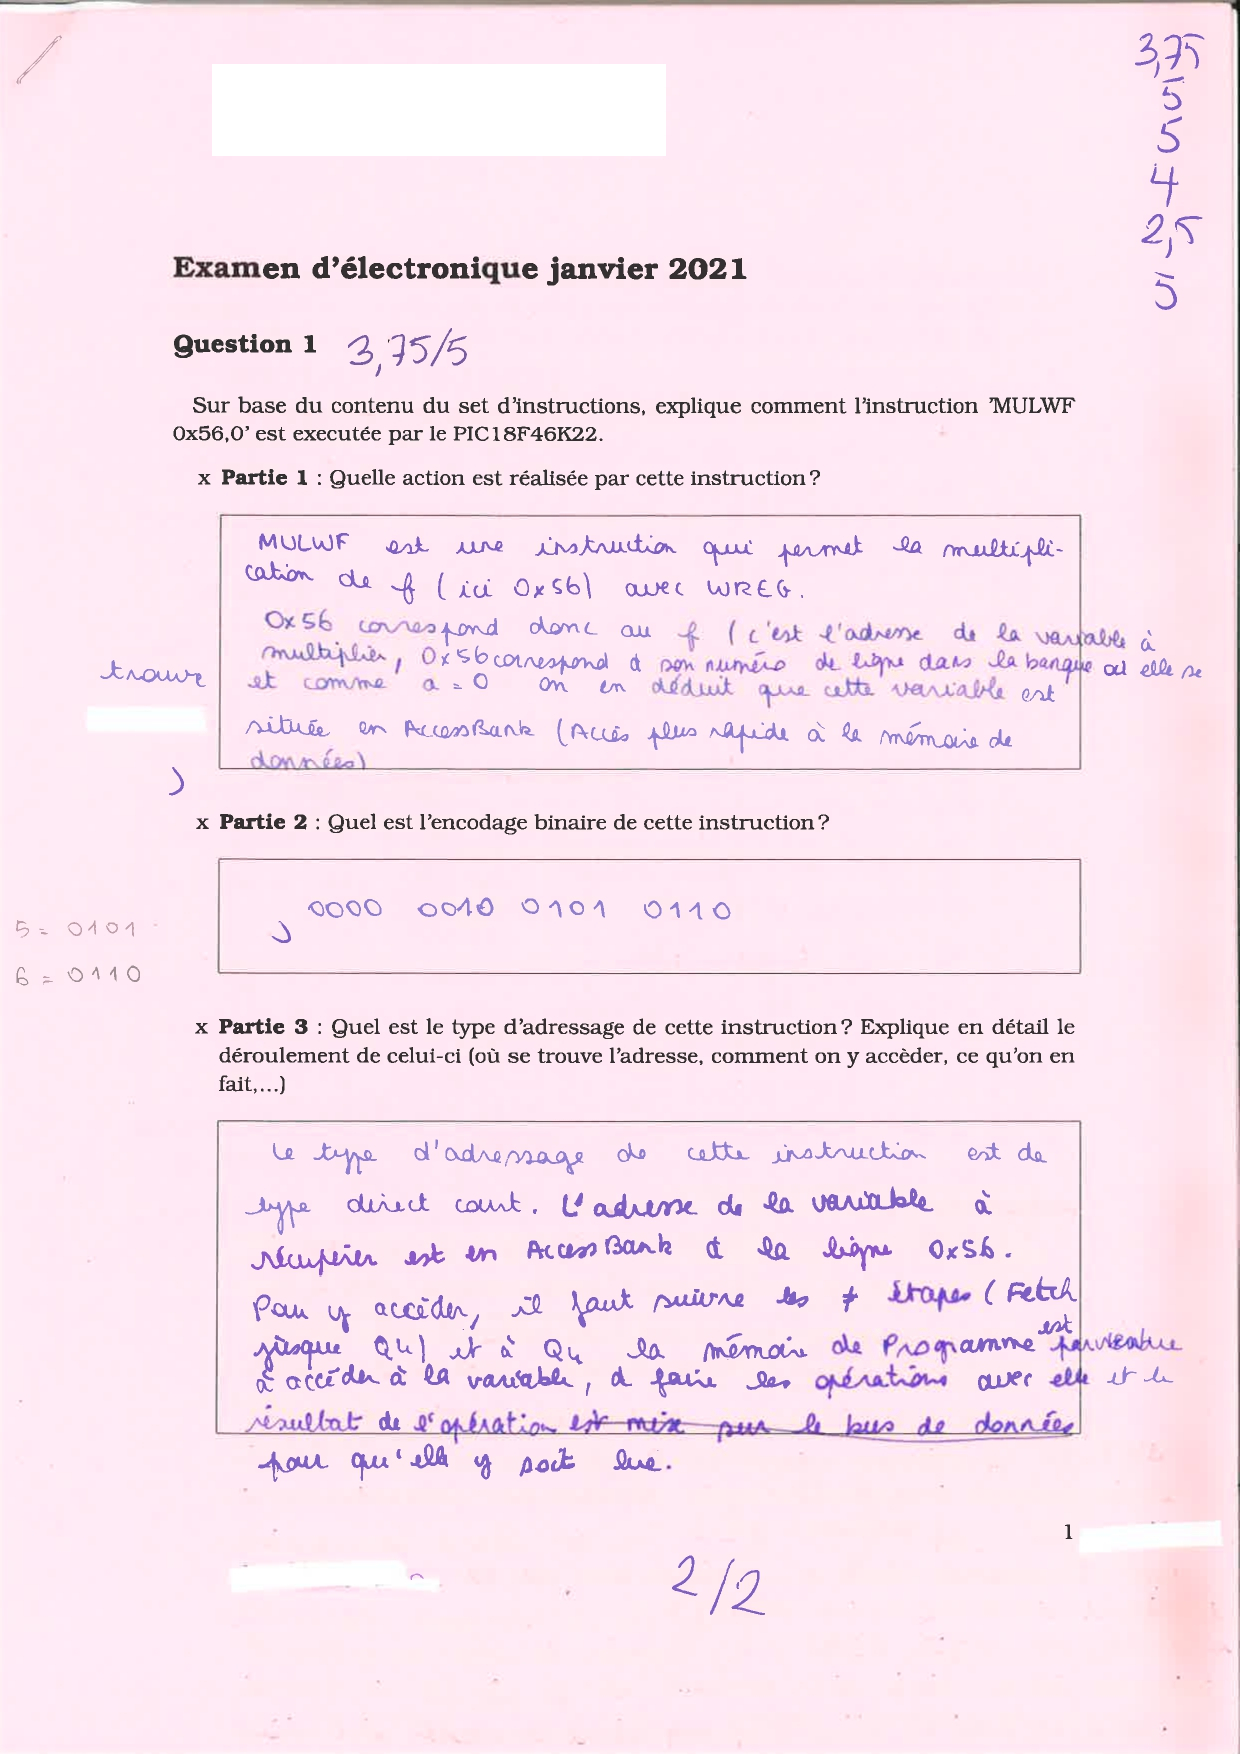 3,75
5
5
4
2,5
5
Examen d'électronique janvier 2021
Question 1 3,75/5
Sur base du contenu du set d'instructions, explique comment l'instruction 'MULWF
0x56,0' est executée par le PIC18F46K22.
x Partie 1 : Quelle action est réalisée par cette instruction ?
MULWF est une instruction qui permet la multipli-
cation de f (ici 0x56) avec WREG.
0x56 correspond donc au f (c'est l'adresse de la variable à
multiplier, 0x56 correspond à son numéro de ligne dans la banque où elle se
trouve
et comme a=0 on en déduit que cette variable est
située en AccessBank (Accès plus rapide à la mémoire de
données)
x Partie 2 : Quel est l'encodage binaire de cette instruction ?
0000 0010 0101 0110
5 = 0101
6 = 0110
x Partie 3 : Quel est le type d'adressage de cette instruction ? Explique en détail le
déroulement de celui-ci (où se trouve l'adresse, comment on y accèder, ce qu'on en
fait,...)
Le type d'adressage de cette instruction est de
type direct court. L'adresse de la variable à
récupérer est en AccessBank à la ligne 0x56.
Pour y accéder, il faut suivre les ≠ étapes (Fetch
jusque Q4) et à Q4 la mémoire de Programme est parvenue
à accéder à la variable, à faire les opérations avec elle et le
résultat de l'opération est mix sur le bus de données
pour qu'elle y soit lue.
1
2/2